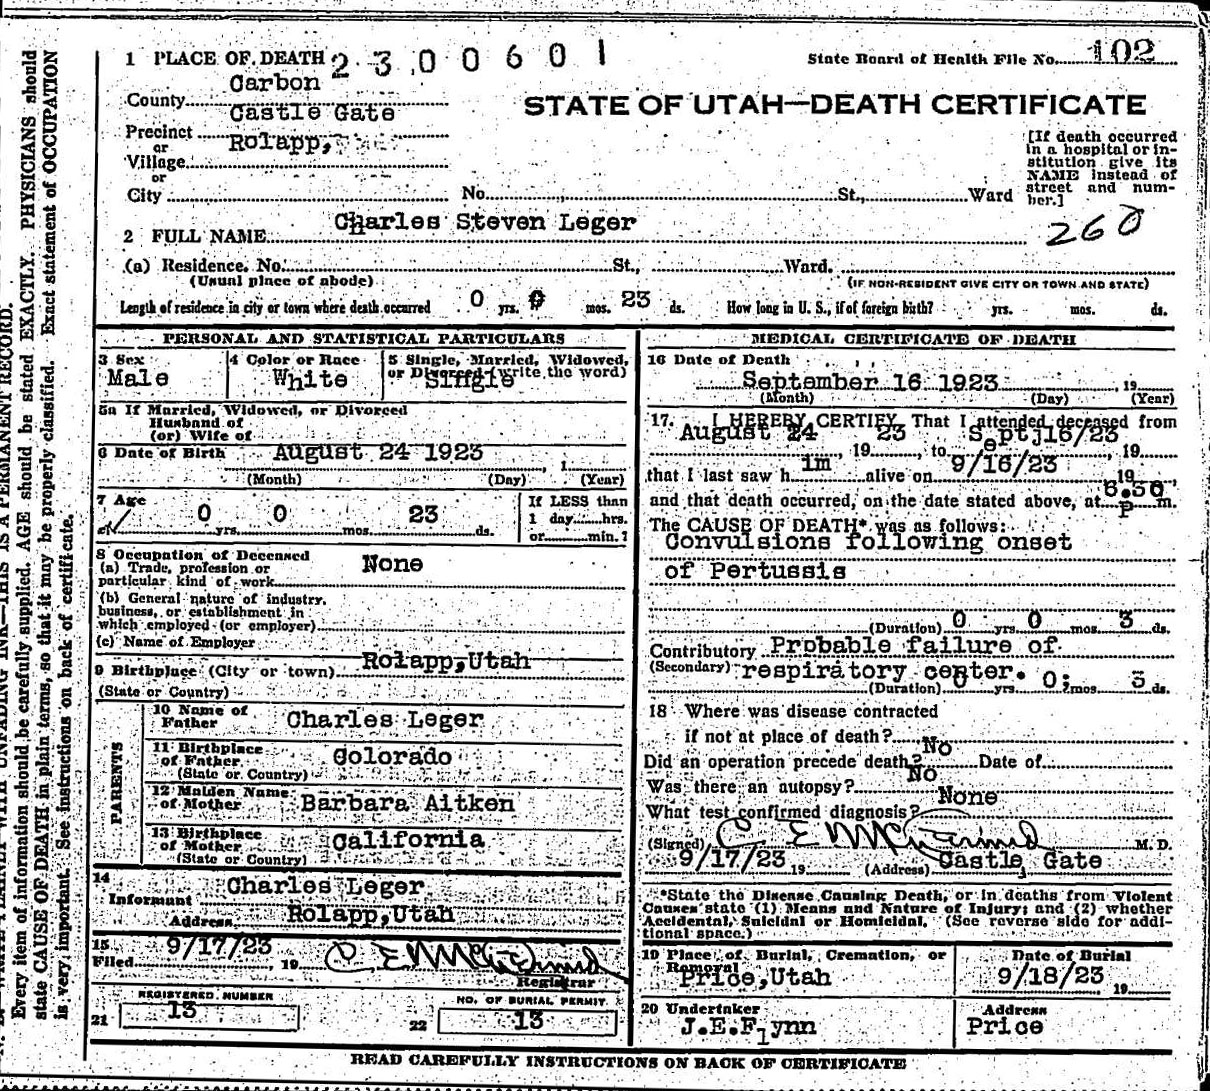 1 PLACE OF DEATH 2 3 0 0 6 0 1
State Board of Health File No. 102
County Carbon
STATE OF UTAH—DEATH CERTIFICATE
Precinct Castle Gate
or
Village Rolapp,
or
City No. St., Ward
[If death occurred
in a hospital or in-
stitution give its
NAME instead of
street and num-
ber.]
2 FULL NAME Charles Steven Leger
260
(a) Residence. No. St., Ward.
(Usual place of abode) (IF NON-RESIDENT GIVE CITY OR TOWN AND STATE)
Length of residence in city or town where death occurred 0 yrs. 0 mos. 23 ds. How long in U. S., if of foreign birth? yrs. mos. ds.
PERSONAL AND STATISTICAL PARTICULARS
3 Sex 4 Color or Race 5 Single, Married, Widowed,
or Divorced (write the word)
Male White Single
5a If Married, Widowed, or Divorced
Husband of
(or) Wife of
6 Date of Birth August 24 1923 , 1
(Month) (Day) (Year)
7 Age If LESS than
0 yrs. 0 mos. 23 ds. 1 day hrs.
or min.?
8 Occupation of Deceased
(a) Trade, profession or
particular kind of work None
(b) General nature of industry,
business, or establishment in
which employed (or employer)
(c) Name of Employer
9 Birthplace (City or town) Rolapp,Utah
(State or Country)
PARENTS
10 Name of
Father Charles Leger
11 Birthplace
of Father Colorado
(State or Country)
12 Maiden Name
of Mother Barbara Aitken
13 Birthplace
of Mother California
(State or Country)
14
Informant Charles Leger
Address Rolapp,Utah
15
Filed 9/17/23 , 19
Registrar
REGISTERED NUMBER NO. OF BURIAL PERMIT
21 13 22 13
MEDICAL CERTIFICATE OF DEATH
16 Date of Death
September 16 1923 , 19
(Month) (Day) (Year)
17. I HEREBY CERTIFY, That I attended deceased from
August 24 , 19 23 , to Sept 16/23 , 19
that I last saw h im alive on 9/16/23 19 ,
and that death occurred, on the date stated above, at 6.30 p m.
The CAUSE OF DEATH* was as follows:
Convulsions following onset
of Pertussis
(Duration) 0 yrs. 0 mos. 3 ds.
Contributory Probable failure of
(Secondary) respiratory center.
(Duration) 0 yrs. 0; mos. 3 ds.
18 Where was disease contracted
if not at place of death?
Did an operation precede death? No Date of
Was there an autopsy? No
What test confirmed diagnosis? None
(Signed) M. D.
9/17/23 19 (Address) Castle Gate
*State the Disease Causing Death, or in deaths from Violent
Causes state (1) Means and Nature of Injury; and (2) whether
Accidental, Suicidal or Homicidal. (See reverse side for addi-
tional space.)
19 Place of Burial, Cremation, or
Removal Date of Burial
Price,Utah 9/18/23 19
20 Undertaker Address
J.E.Flynn Price
READ CAREFULLY INSTRUCTIONS ON BACK OF CERTIFICATE
Every item of information should be carefully supplied. AGE should be stated EXACTLY. PHYSICIANS should
state CAUSE OF DEATH in plain terms, so that it may be properly classified. Exact statement of OCCUPATION
is very important. See instructions on back of certificate.
WITH UNFADING INK—THIS IS A PERMANENT RECORD.